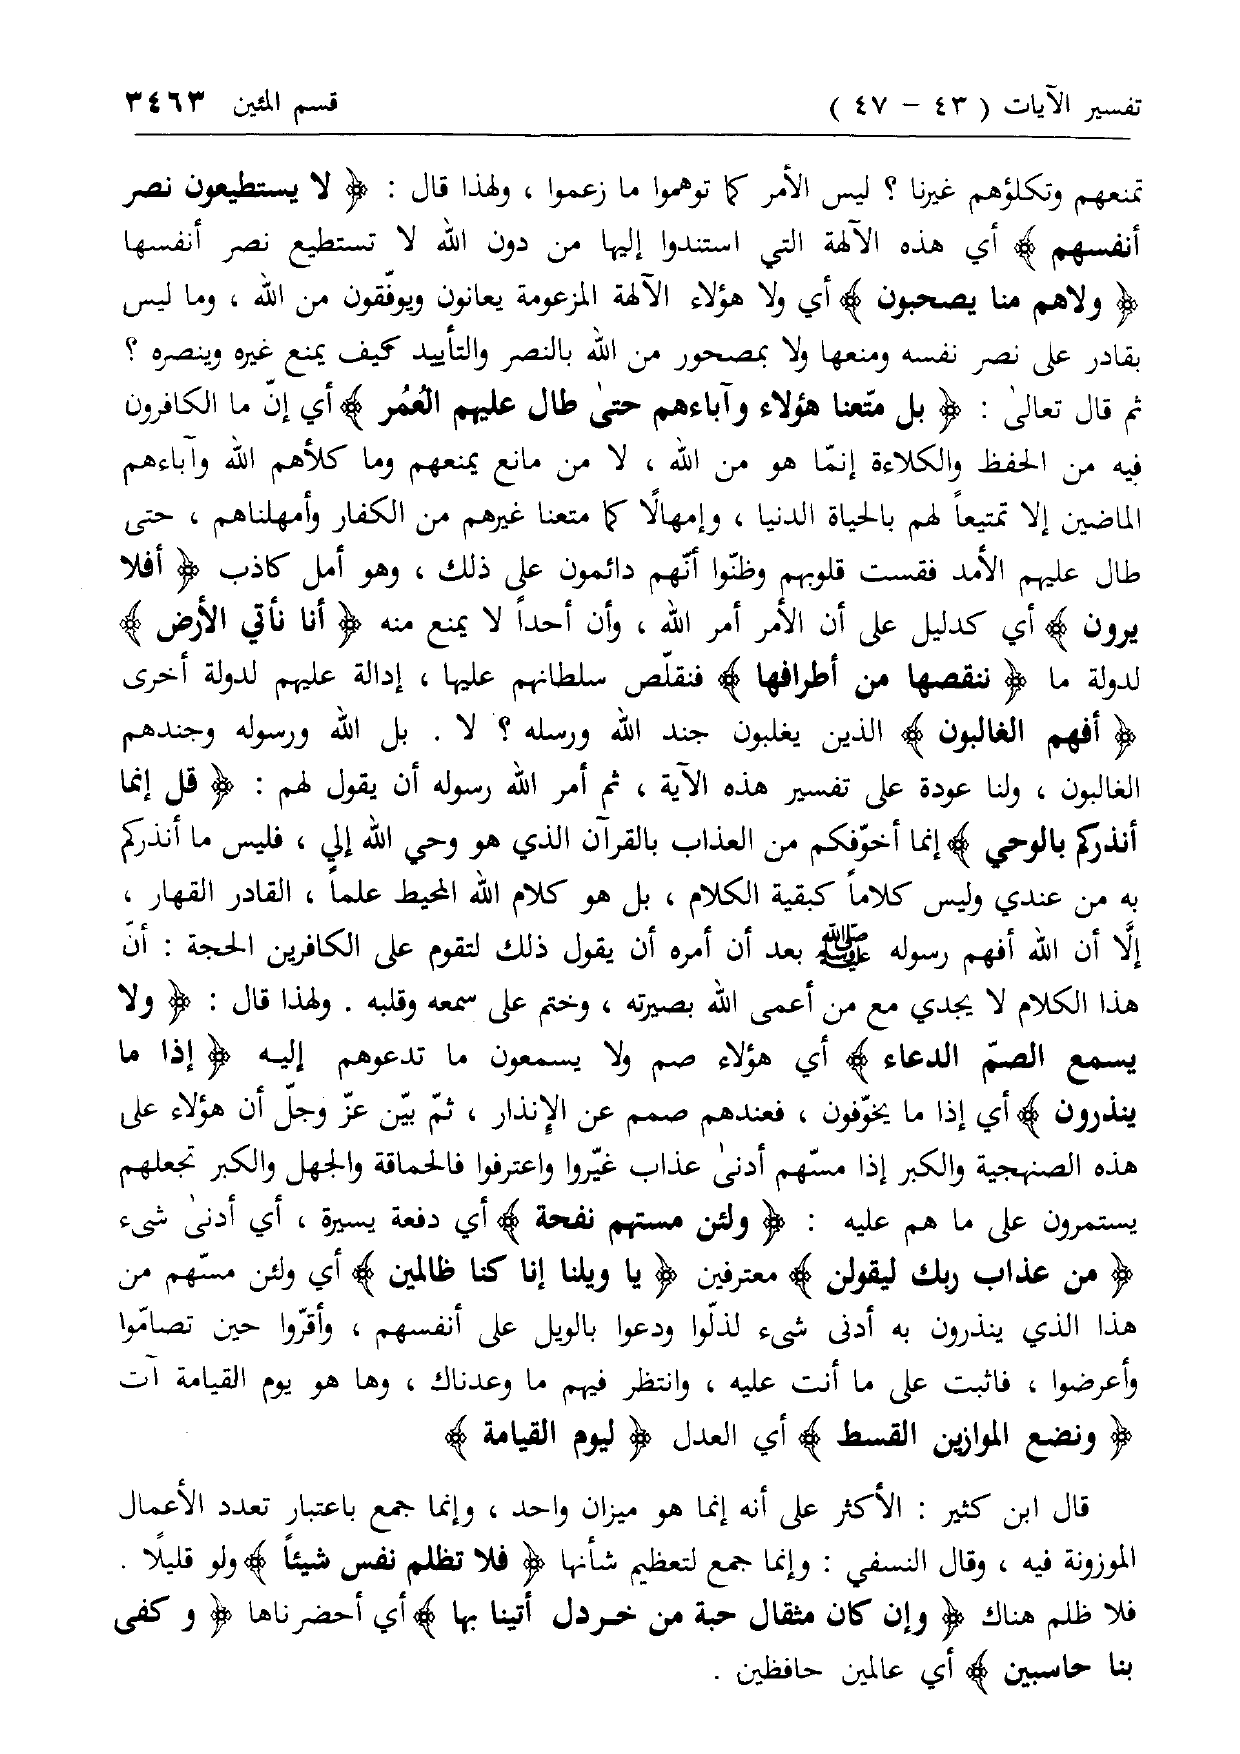 تفسير الآيات ( ٤٣ – ٤٧ )
قسم المئين ٣٤٦٣
تمنعهم وتكلؤهم غيرنا ؟ ليس الأمر كما توهموا ما زعموا ، ولهذا قال : ﴿ لا يستطيعون نصر
أنفسهم ﴾ أي هذه الآلهة التي استندوا إليها من دون الله لا تستطيع نصر أنفسها
﴿ ولاهم منا يصحبون ﴾ أي ولا هؤلاء الآلهة المزعومة يعانون ويوفّقون من الله ، وما ليس
بقادر على نصر نفسه ومنعها ولا بمصحور من الله بالنصر والتأييد كيف يمنع غيره وينصره ؟
ثم قال تعالىٰ : ﴿ بل متّعنا هؤلاء وآباءهم حتىٰ طال عليهم العُمُر ﴾ أي إنّ ما الكافرون
فيه من الحفظ والكلاءة إنّما هو من الله ، لا من مانع يمنعهم وما كلأهم الله وآباءهم
الماضين إلا تمتيعاً لهم بالحياة الدنيا ، وإمهالًا كما متعنا غيرهم من الكفار وأمهلناهم ، حتى
طال عليهم الأمد فقست قلوبهم وظنّوا أنّهم دائمون على ذلك ، وهو أمل كاذب ﴿ أفلا
يرون ﴾ أي كدليل على أن الأمر أمر الله ، وأن أحداً لا يمنع منه ﴿ أنا نأتي الأرض ﴾
لدولة ما ﴿ ننقصها من أطرافها ﴾ فنقلّص سلطانهم عليها ، إدالة عليهم لدولة أخرى
﴿ أفهم الغالبون ﴾ الذين يغلبون جند الله ورسله ؟ لا . بل الله ورسوله وجندهم
الغالبون ، ولنا عودة على تفسير هذه الآية ، ثم أمر الله رسوله أن يقول لهم : ﴿ قل إنما
أنذركم بالوحي ﴾ إنما أخوّفكم من العذاب بالقرآن الذي هو وحي الله إلي ، فليس ما أنذركم
به من عندي وليس كلاماً كبقية الكلام ، بل هو كلام الله المحيط علماً ، القادر القهار ،
إلَّا أن الله أفهم رسوله ﷺ بعد أن أمره أن يقول ذلك لتقوم على الكافرين الحجة : أنّ
هذا الكلام لا يجدي مع من أعمى الله بصيرته ، وختم على سمعه وقلبه . ولهذا قال : ﴿ ولا
يسمع الصمّ الدعاء ﴾ أي هؤلاء صم ولا يسمعون ما تدعوهم إليه ﴿ إذا ما
ينذرون ﴾ أي إذا ما يخوّفون ، فعندهم صمم عن الإنذار ، ثمّ بيّن عزّ وجلّ أن هؤلاء على
هذه الصنهجية والكبر إذا مسّهم أدنىٰ عذاب غيّروا واعترفوا فالحماقة والجهل والكبر تجعلهم
يستمرون على ما هم عليه : ﴿ ولئن مستهم نفحة ﴾ أي دفعة يسيرة ، أي أدنىٰ شىء
﴿ من عذاب ربك ليقولن ﴾ معترفين ﴿ يا ويلنا إنا كنا ظالمين ﴾ أي ولئن مسّهم من
هذا الذي ينذرون به أدنى شىء لذلّوا ودعوا بالويل على أنفسهم ، وأقرّوا حين تصامّوا
وأعرضوا ، فاثبت على ما أنت عليه ، وانتظر فيهم ما وعدناك ، وها هو يوم القيامة آت
﴿ ونضع الموازين القسط ﴾ أي العدل ﴿ ليوم القيامة ﴾
قال ابن كثير : الأكثر على أنه إنما هو ميزان واحد ، وإنما جمع باعتبار تعدد الأعمال
الموزونة فيه ، وقال النسفي : وإنما جمع لتعظيم شأنها ﴿ فلا تظلم نفس شيئاً ﴾ ولو قليلًا .
فلا ظلم هناك ﴿ وإن كان مثقال حبة من خردل أتينا بها ﴾ أي أحضرناها ﴿ وكفى
بنا حاسبين ﴾ أي عالمين حافظين .